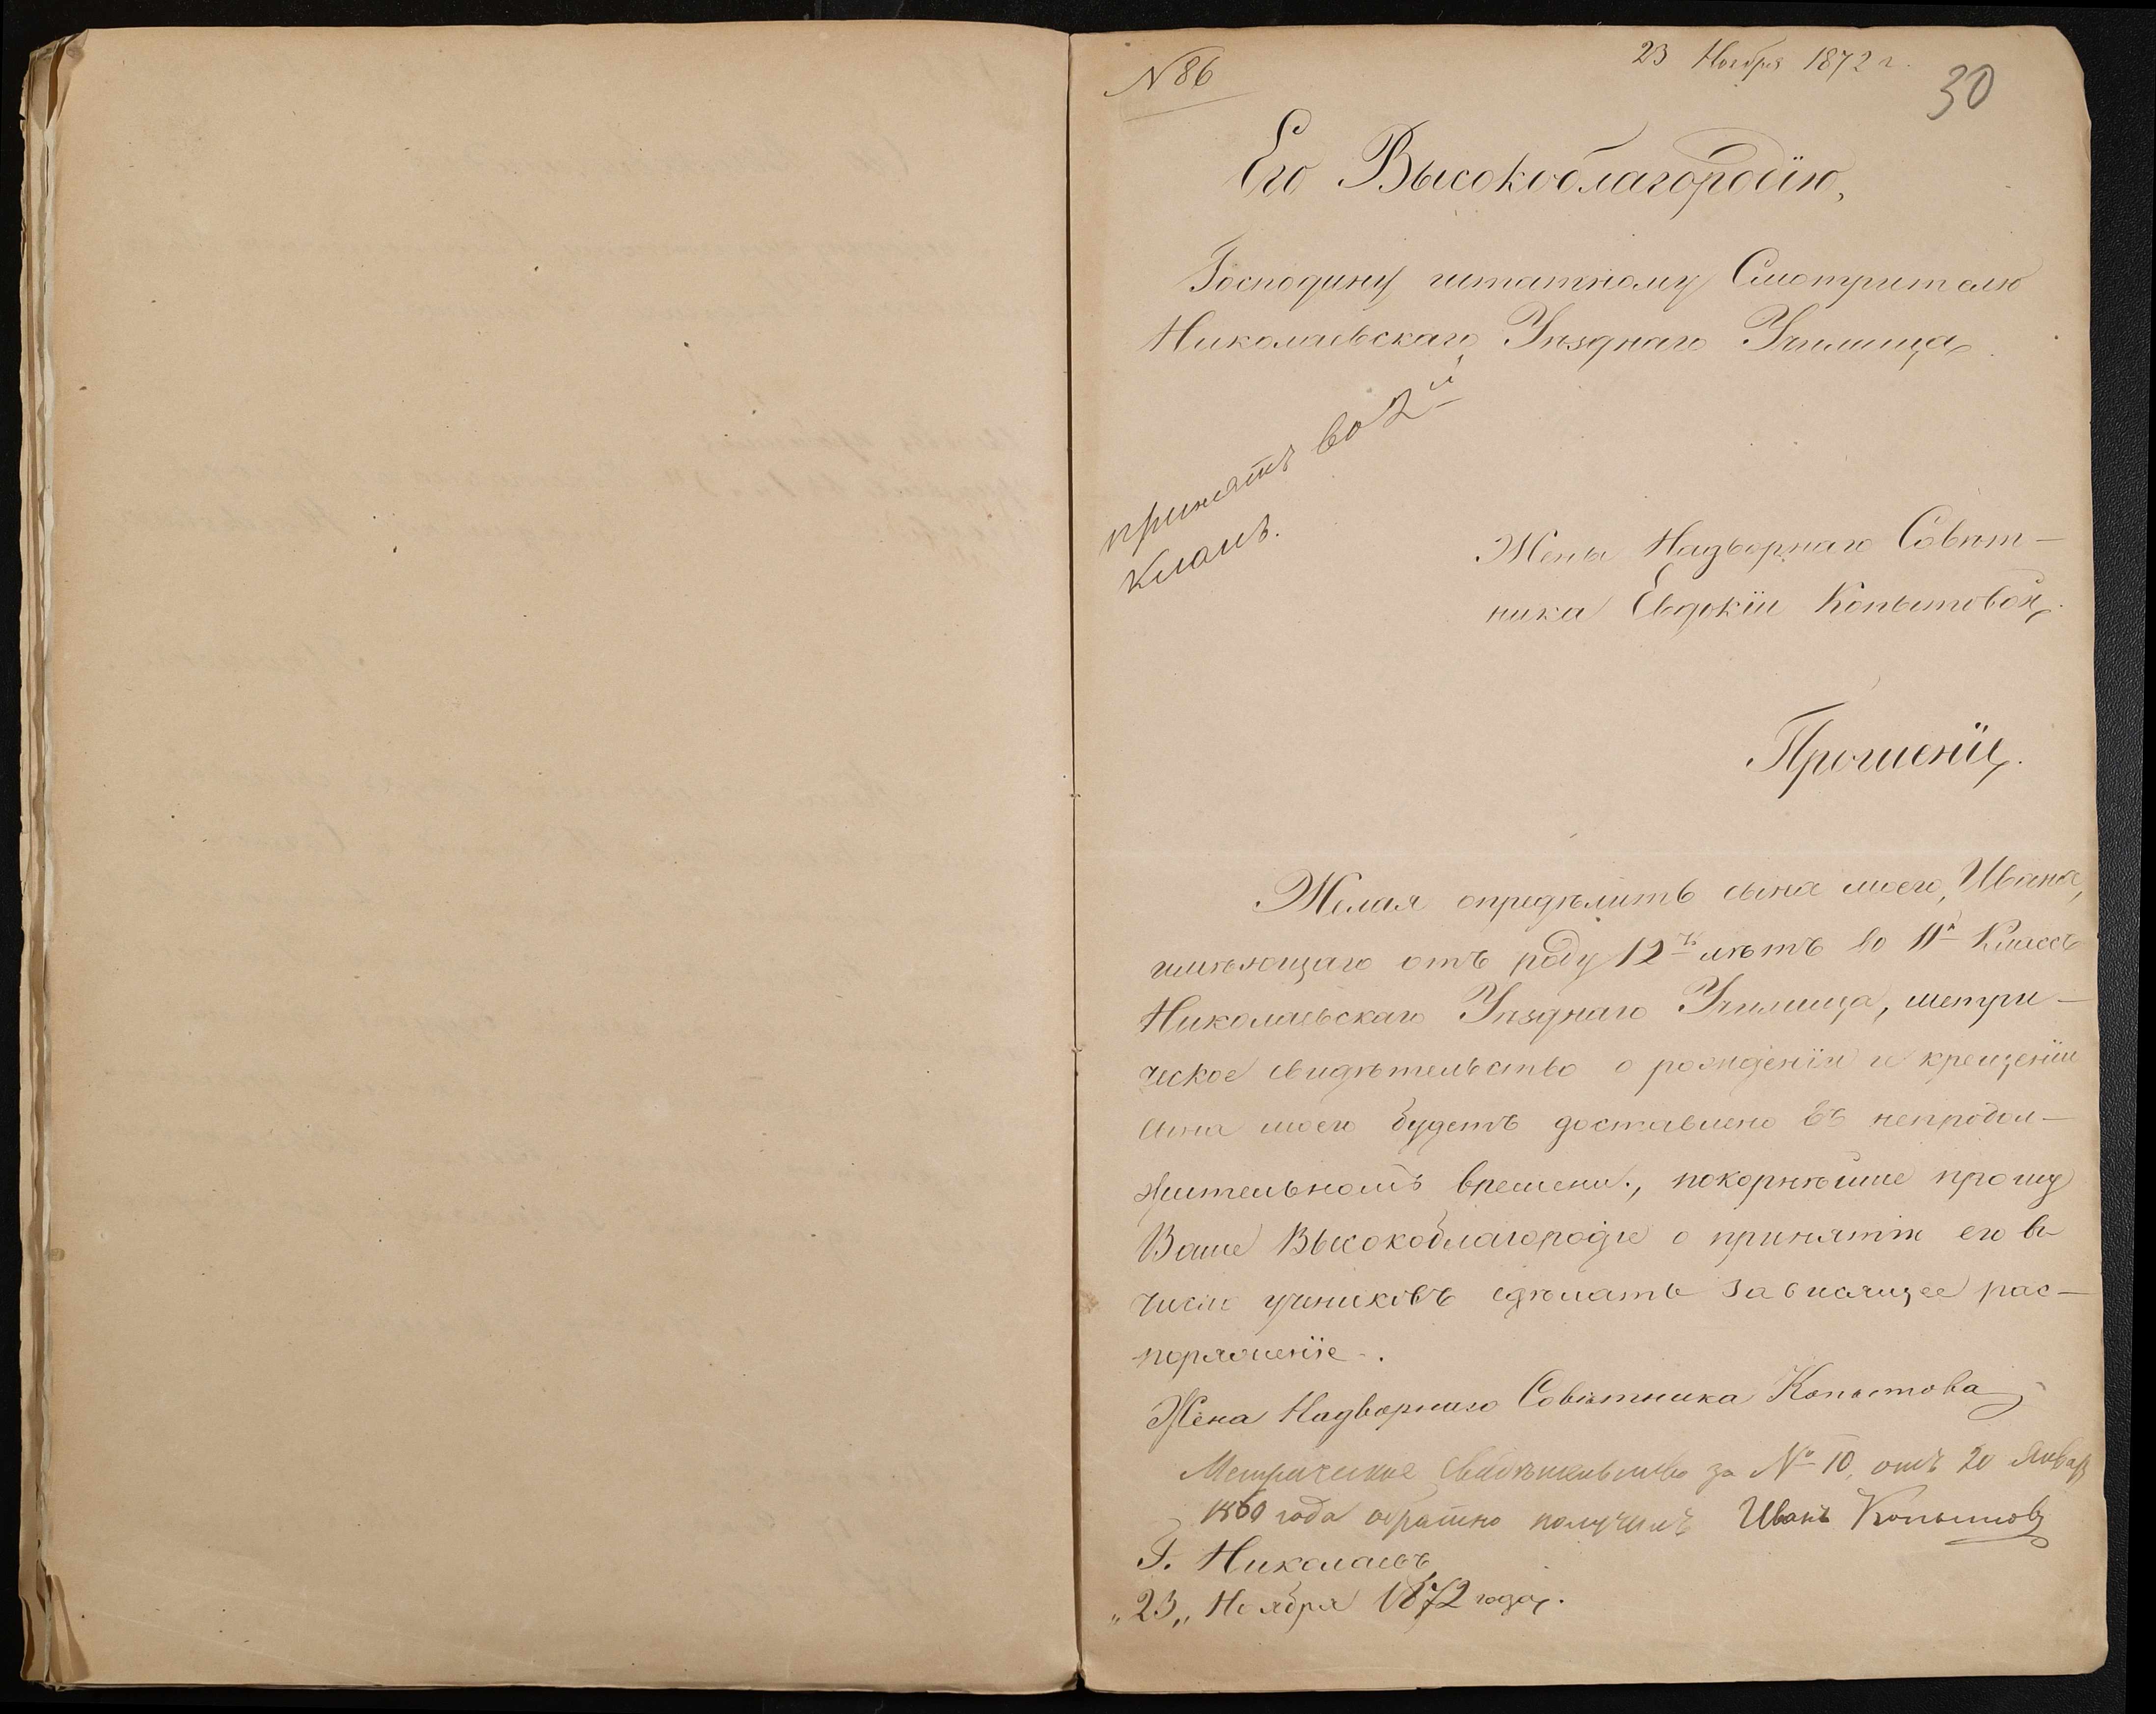 N 86
23 Ноября 1872 г.
30
Его Высокоблагородію,
Господину штатному Смотрителю
Николаевскаго Уѣзднаго Училища
принять во 2й
классъ.
Жены Надворнаго Совѣт-
ника Евдокіи Копытовой,
Прошеніе.
Желая опредѣлить сына моего, Ивана,
имѣющаго отъ роду 12ть лѣтъ во IIй Классъ
Николаевскаго Уѣзднаго Училища, метри-
ческое свидѣтельство о рожденіи и крещеніи
сына моего будетъ доставлено въ непродол-
жительномъ времени., покорнѣйше прошу
Ваше Высокоблагородіе о принятіи его въ
число учениковъ сдѣлать зависящее рас-
поряженіе.
Жена Надворнаго Совѣтника Копытова
Метрическое свидѣтельство за № 10, отъ 20 Января
1860 года обратно получилъ Иванъ Копытовъ
Г. Николаевъ
„23„ Ноября 1872 года.